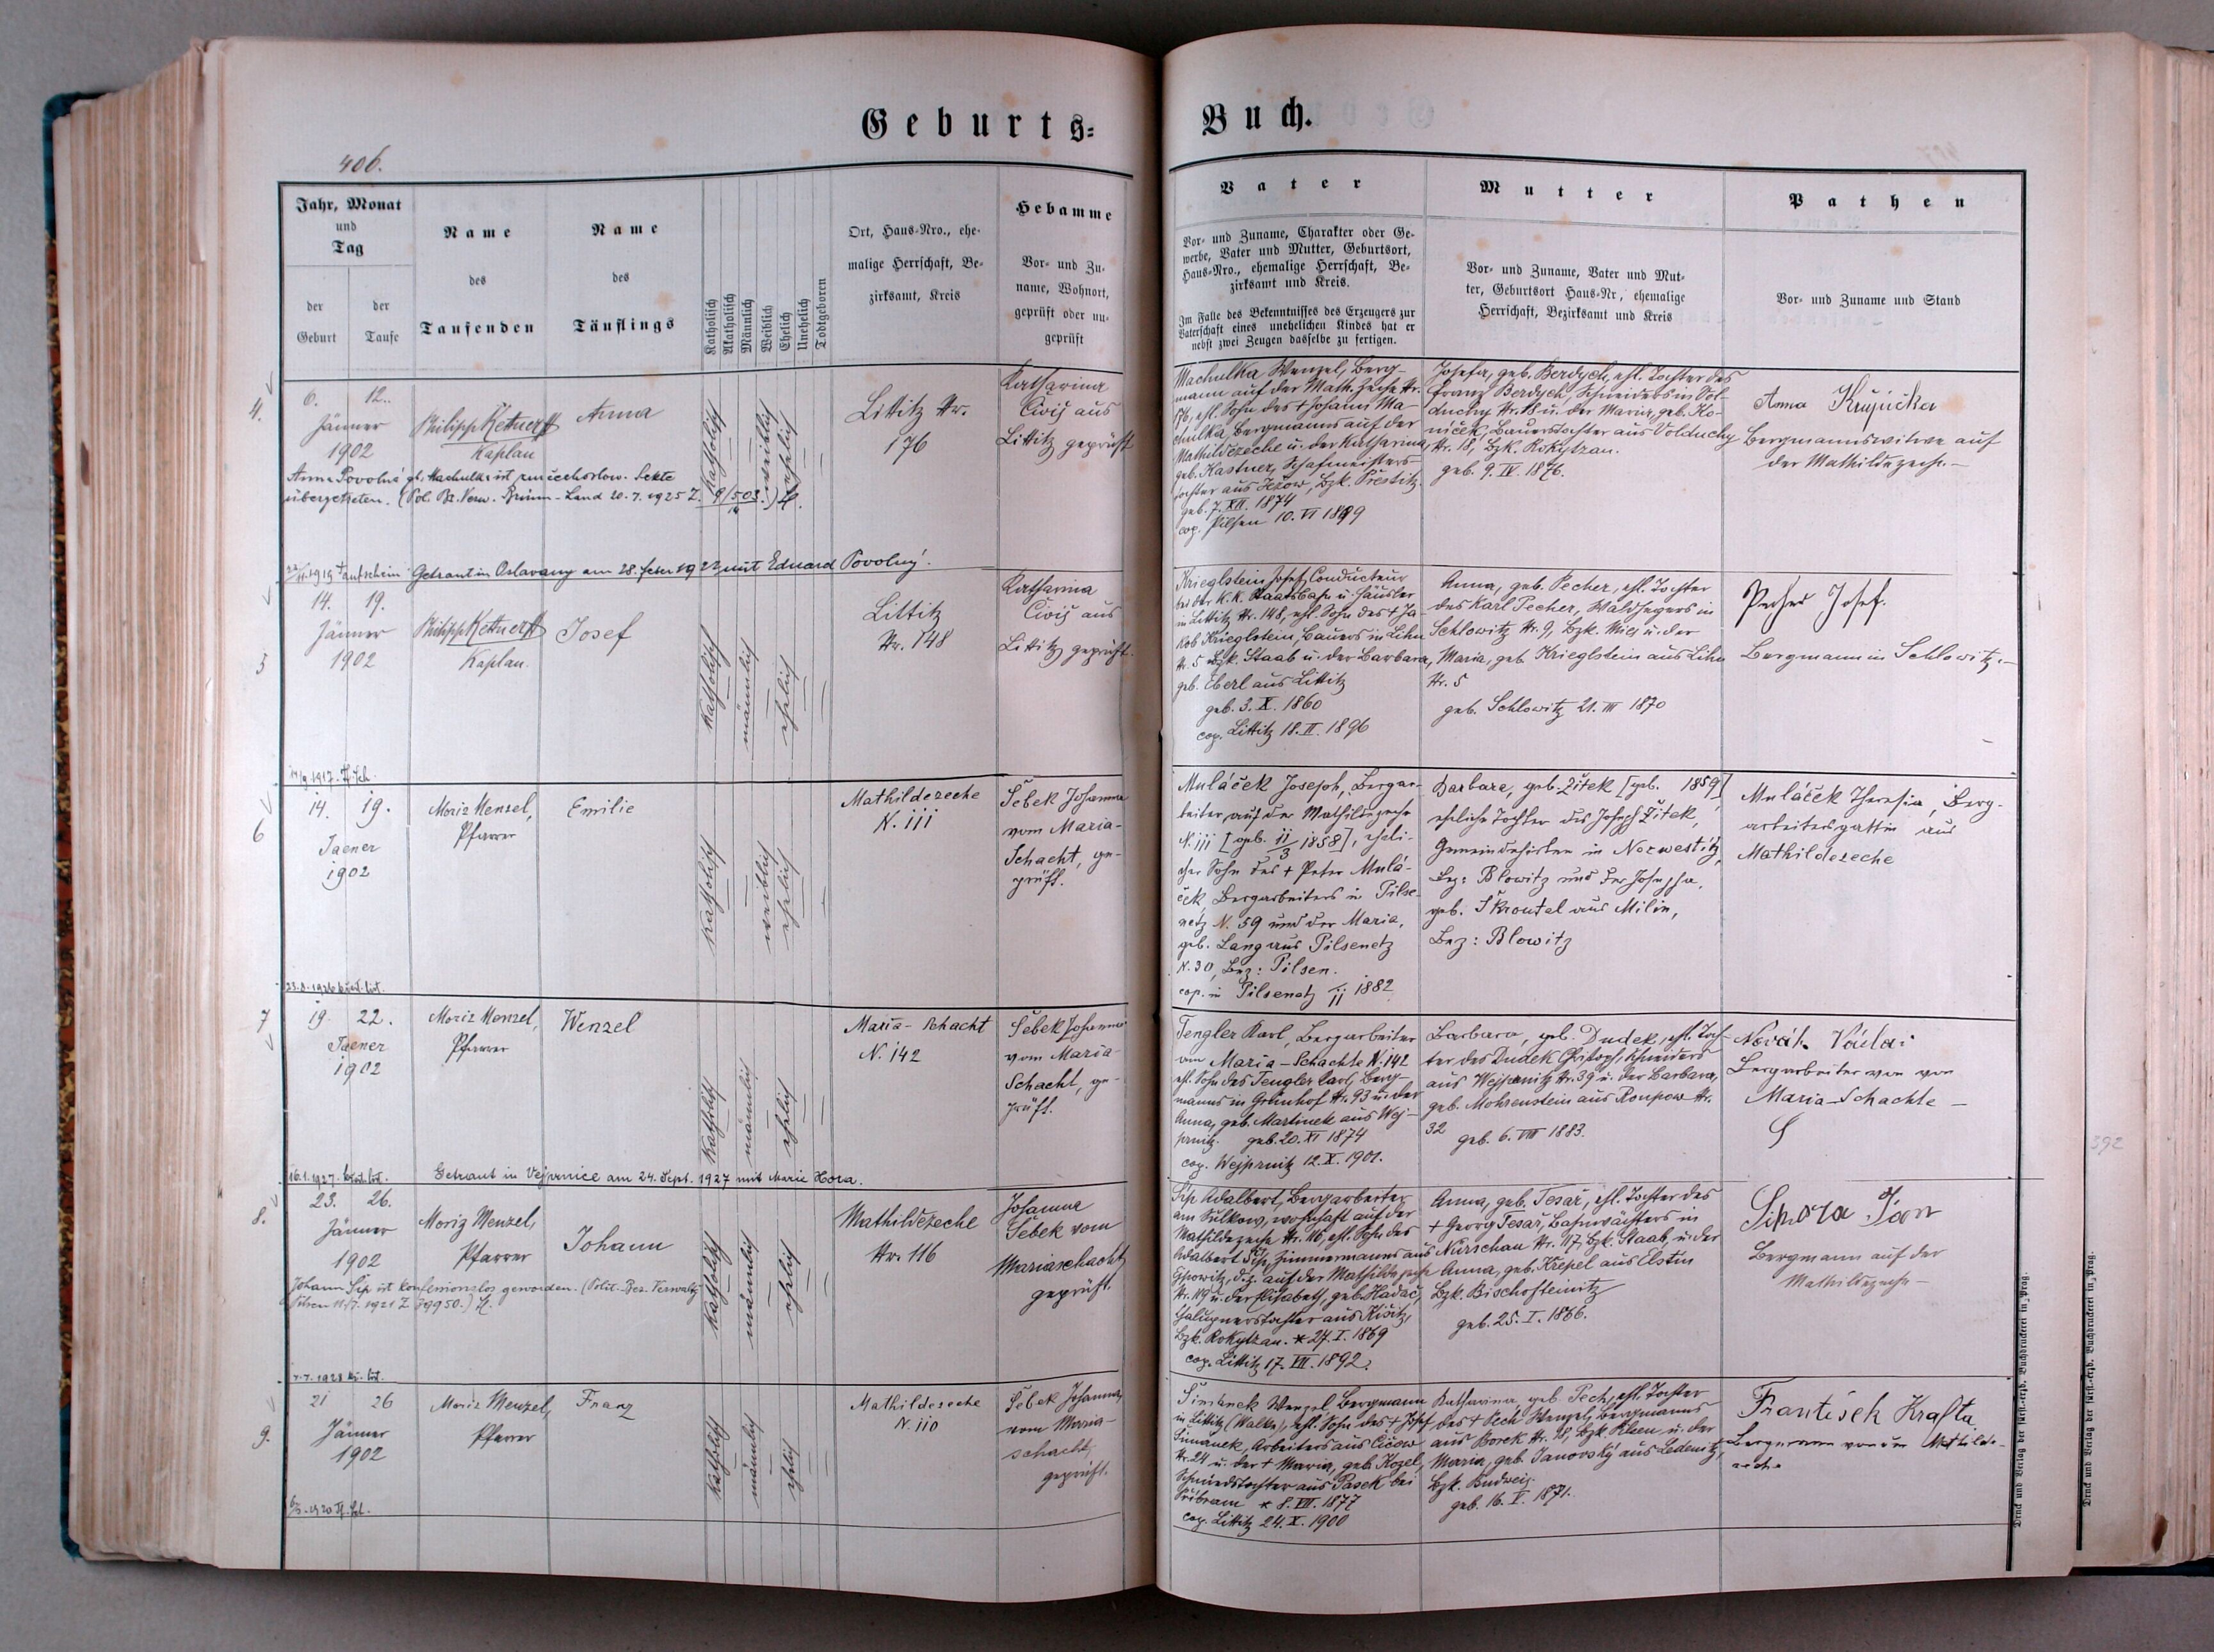 Geburts=
Buch.
406.
Jahr, Monat
und
Tag
der
Geburt
der
Taufe
Name
des
Taufenden
Name
des
Täuflings
Katholisch
Akatholisch
Männlich
Weiblich
Ehelich
Unehelich
Todtgeboren
Ort, Haus-Nro., ehe-
malige Herrschaft, Be-
zirksamt, Kreis
Hebamme
Vor- und Zu-
name, Wohnort,
geprüft oder un-
geprüft
Vater
Vor- und Zuname, Charakter oder Ge-
werbe, Vater und Mutter, Geburtsort,
Haus-Nro., ehemalige Herrschaft, Be-
zirksamt und Kreis.
Im Falle des Bekenntnisses des Erzeugers zur
Vaterschaft eines unehelichen Kindes hat er
nebst zwei Zeugen dasselbe zu fertigen.
Mutter
Vor- und Zuname, Vater und Mut-
ter, Geburtsort Haus-Nr, ehemalige
Herrschaft, Bezirksamt und Kreis
Pathen
Vor- und Zuname und Stand
4.
6. 12.
Jänner
1902
Philipp Kettner
Kaplan
Anna
katholisch
weiblich
ehelich
Littitz Nr.
176
Katharina
Čiviš aus
Littitz geprüft
Anna Povolná gb. Machulka ist zur čechoslow. Sekte
übergetreten. (Pol. Bz. Verw. Brünn-Land 20.7.1925 Z.
Getraut in Oslavany am 28. feber 1922 mit Eduard Povolný.
Machulka Wenzel, Berg-
mann auf der Math. Zeche Nr.
176, ehl. Sohn des + Johann Ma-
chulka, Bergmanns auf der
Mathildezeche u. der Katharina,
geb. Kastner, Schafmeisters-
tochter aus Ježow, Bzk. Přestitz.
geb. 7. XII. 1874
cop. Pilsen 10. VI 1899
Josefa, geb. Berdych, ehl. Tochter des
Franz Berdych, Schneiders in Vol-
duchy Nr. 18 u. der Maria, geb. Ko-
níček, Bauerstochter aus Volduchy
Nr. 18, Bzk. Rokytzan.
geb. 9. IV. 1876.
Anna
Bergmannswitwe auf
der Mathildezeche.
5
14. 19.
Jänner
1902
Philipp Kettner
Kaplan.
Josef
katholisch
männlich
ehelich
Littitz
Nr. 148
Katharina
Čiviš aus
Littitz geprüft.
Krieglstein Josef, Conducteur
bei der K.K. Staatsbahn u. Häusler
in Littitz Nr. 148, ehl. Sohn des + Ja-
kob Krieglstein, Bauers in Lihn
Nr. 5 Bzk. Staab u. der Barbara,
geb. Eberl aus Littitz
geb. 3. X. 1860
cop. Littitz 18. II. 1896
Anna, geb. Pecher, ehl. Tochter
des Karl Pecher, Waldhegers in
Schlowitz Nr. 9, Bzk. Mies u. der
Maria, geb. Krieglstein aus Lihn
Nr. 5
geb. Schlowitz 21. III 1870
Pecher Josef.
Bergmann in Schlowitz.
6
14. 19.
Jaener
1902
Moriz Menzel,
Pfarrer
Emilie
katholisch
weiblich
ehelich
Mathildezeche
N. 111
Šebek Johanna
vom Maria-
Schacht, ge-
prüft.
Muláček Joseph, Bergar-
beiter auf der Mathildezeche
N. 111 [geb. 11/3 1858], eheli-
cher Sohn des + Peter Mulá-
ček, Bergarbeiters in Pilse-
netz N. 59 und der Maria,
geb. Lang aus Pilsenetz
N. 30, Bez: Pilsen.
cop. in Pilsenetz 1882
Barbara, geb. Žitek [geb. 1859]
eheliche Tochter des Joseph Žitek,
Gemeindehirten in Nezwestitz,
Bez: Blowitz und der Josepha,
geb. Skroutal aus Milin,
Bez: Blowitz
Muláček Theresia, Berg-
arbeitersgattin aus
Mathildezeche
7
19. 22.
Jaener
1902
Moriz Menzel,
Pfarrer
Wenzel
katholisch
männlich
ehelich
Maria-Schacht
N. 142
Šebek Johanna
vom Maria-
Schacht, ge-
prüft.
Getraut in Vejprnice am 24. Sept. 1927 mit Marie Hora.
Tengler Karl, Bergarbeiter
am Maria-Schachte N. 142
ehl. Sohn des Tengler Karl, Berg-
manns in Grünhof Nr. 93 u. der
Anna, geb. Martinek aus Wej-
prnitz. geb. 20. XI 1874
cop. Wejprnitz 12. X. 1901.
Barbara, geb. Dudek, ehl. Toch-
ter des Dudek Christoph, Schneiders
aus Wejprnitz Nr. 39 u. der Barbara,
geb. Mohrenstein aus Roupow Nr.
32 geb. 6. VIII 1883.
Novák
Bergarbeiter von
Maria-Schachte
8.
23. 26.
Jänner
1902
Moriz Menzel,
Pfarrer
Johann
katholisch
männlich
ehelich
Mathildezeche
Nr. 116
Johanna
Šebek vom
Mariaschacht
geprüft.
Johann Šíp ist konfessionslos geworden. (Polit. Bez. Verwaltg.
Pilsen 11./7. 1921 Z. 79950.)
Šíp Adalbert, Bergarbeiter
am Sulkow, wohnhaft auf der
Mathildezeche Nr. 116, ehl. Sohn des
Adalbert Šíp, Zimmermanns aus
d.z. auf der Mathildezeche
Nr. 119 u. der Elisabeth, geb. Hadač,
Chalupnerstochter aus Kišitz,
Bzk. Rokytzan. * 27. I. 1869
cop. Littitz 17. VII. 1892.
Anna, geb. Tesař, ehl. Tochter des
+ Georg Tesař, Bahnwächters in
Nürschau Nr. 117, Bzk. Staab, u. der
Anna, geb. Křepel aus Elstin
Bzk. Bischofteinitz
geb. 25. I. 1866.
Sikora Jan
Bergmann auf der
Mathildezeche
9.
21 26
Jänner
1902
Moriz Menzel,
Pfarrer
Franz
katholisch
männlich
ehelich
Mathildezeche
N. 110
Šebek Johanna,
vom Maria-
schacht,
geprüft.
Šimánek Wenzel Bergmann
in Littitz (Valcha), ehl. Sohn des + Josef
Šimánek, Arbeiters aus Čičow
Nr. 24 u. der + Maria, geb. Kozel,
Schmiedstochter aus Pasek bei
Přibram * 8. VII. 1877
cop. Littitz 24. X. 1900
Katharina, geb. Pech, ehl. Tochter
des + Pech Wenzel, Bergmanns
aus Borek Nr. 18, Bzk. u. der
Maria, geb. Janovský aus Ledenitz,
Bzk. Budweis.
geb. 16. V. 1871.
František Krafta
Bergmann von der Mathilde-
zeche
Druck und Verlag der fürst.-erzb. Buchdruckerei in Prag.
Druck und Verlag der fürst.-erzb. Buchdruckerei in Prag.
392